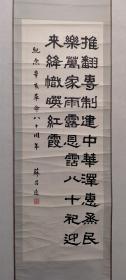 推翻專制建中華澤惠烝民
樂萬家雨露恩霑八十祀迎
來絳幟映紅霞
紀念辛亥革命八十周年 蘇昌遼